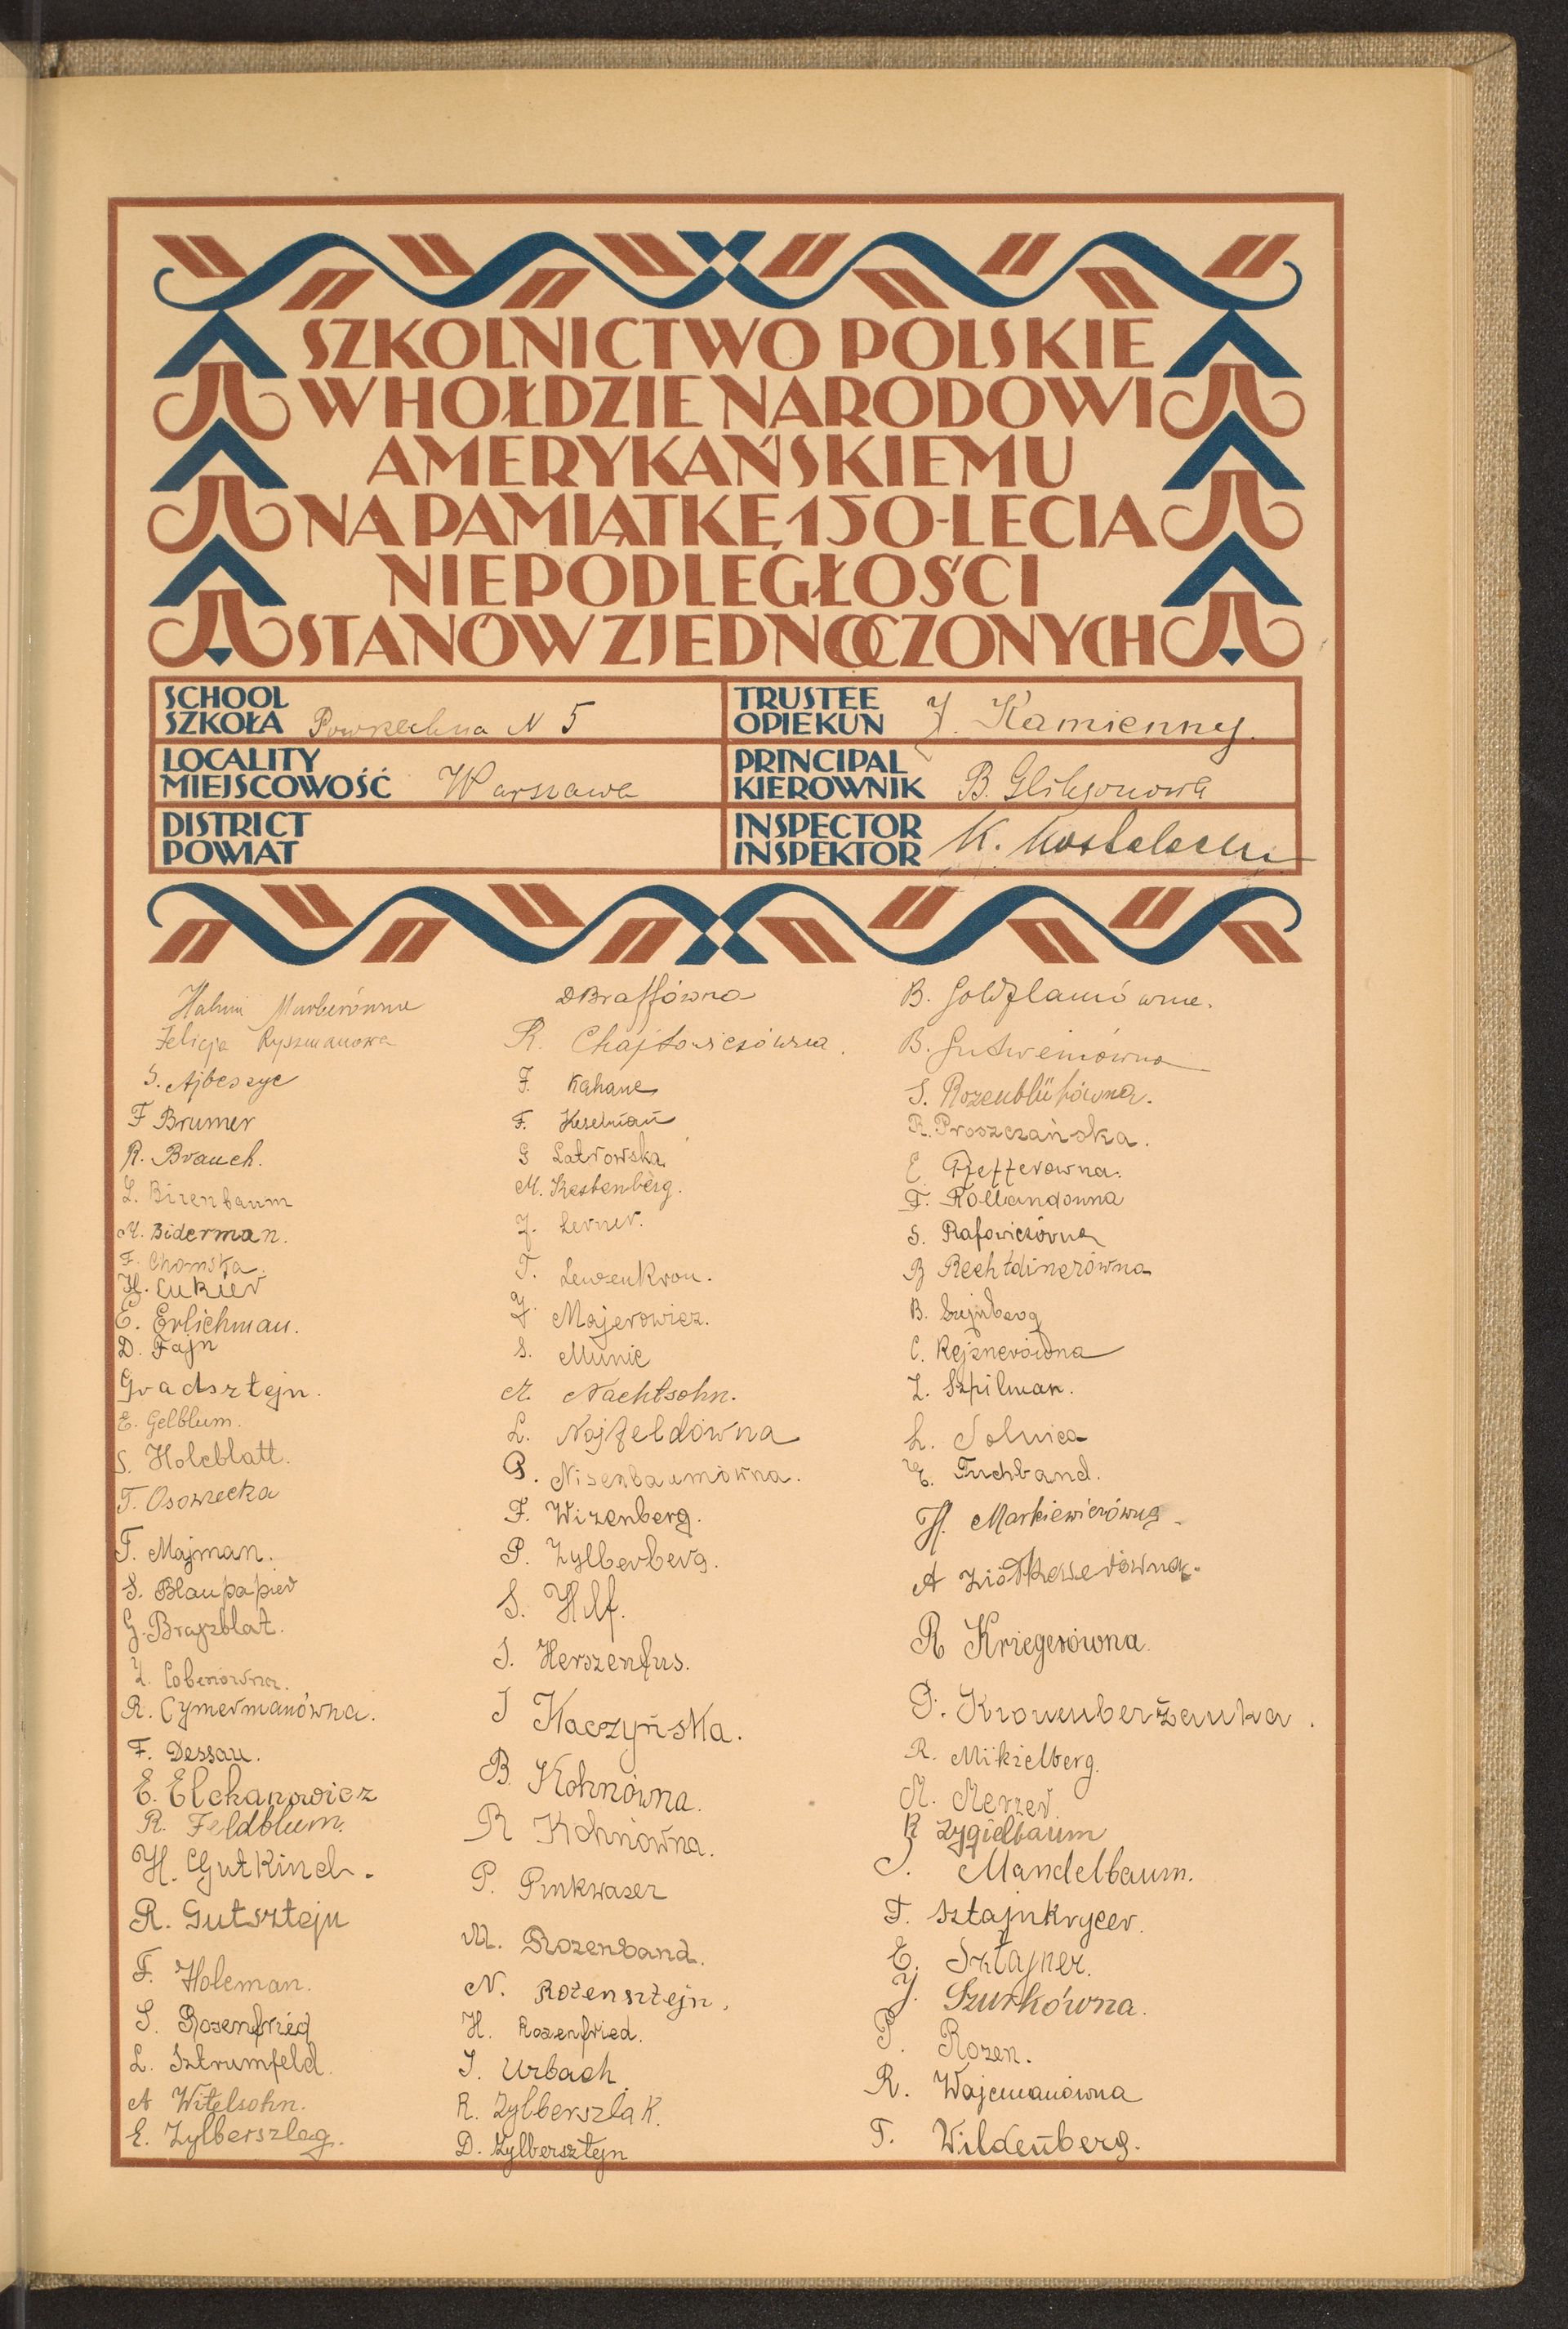 SZKOLNICTWO POLSKIE
W HOŁDZIE NARODOWI
AMERYKAŃSKIEMU
NA PAMIĄTKĘ 150-LECIA
NIEPODLEGŁOŚCI
STANÓW ZJEDNOCZONYCH
SCHOOL
SZKOŁA Powszechna N 5
TRUSTEE
OPIEKUN J. Kamienny
LOCALITY
MIEJSCOWOŚĆ Warszawa
PRINCIPAL
KIEROWNIK B. Gliksonowa
DISTRICT
POWIAT
INSPECTOR
INSPEKTOR K.
Felicja Ryszmanowa
S. Ajbeszyc
F Brumer
R. Brauch.
L. Birenbaum
M. Biderman.
F. Chomska.
H. Cukier
E. Erlichman.
D. Fajn
Gradsztejn.
E. Gelblum.
S. Holcblatt.
T. Osowiecka
F. Majman.
S. Blaupapier
G. Brajzblat.
R. Cymermanówna.
F. Dessau.
E. Elchanowicz
R. Feldblum.
H. Gutkind.
R. Gutsztejn
F. Holcman.
S. Rosenfried
L. Sztrumfeld.
A Witelsohn.
E. Zylberszlag.
D Braffówna
R. Chajtowiczówna.
F. Kahane
F. Keselman
G Latrowska
M. Kestenberg.
J. Lerner.
T. Lewenkron.
J. Majerowicz.
S. Munic
A. Nachtsohn.
L. Najfeldówna
P. Nisenbaumówna.
F. Wizenberg.
P. Zylberberg.
S. Hilf.
S. Herszenfus.
J Kaczyńska.
B. Kohnówna.
R Kohnówna.
P. Pinkwaser
M. Rozenband.
N. Rozensztejn.
H. Rozenfried.
J. Urbach
R. Zylberszlak.
D. Zylbersztejn
B. Goldflamówna.
B. Gutweniówna
S. Rozenblütówna.
R. Proszczańska.
E. Pfefferowna.
F. Rollandowna
S. Rafowiczówna
B Rechtdinerówna
B. Szejnberg
C. Rejznerówna
L. Szpilman.
L. Solnica
E. Fuchband.
H. Markiewiczówna
A Ziółkewerówna.
R Kriegerówna.
P. Kronenberżanka.
R. Mikielberg.
M. Merzer.
R Zygielbaum
J. Mandelbaum.
T. Sztajnkrycer.
E. Sztajner.
J. Szurkówna.
P. Rozen.
R. Wajcmanówna
T. Wildenberg.